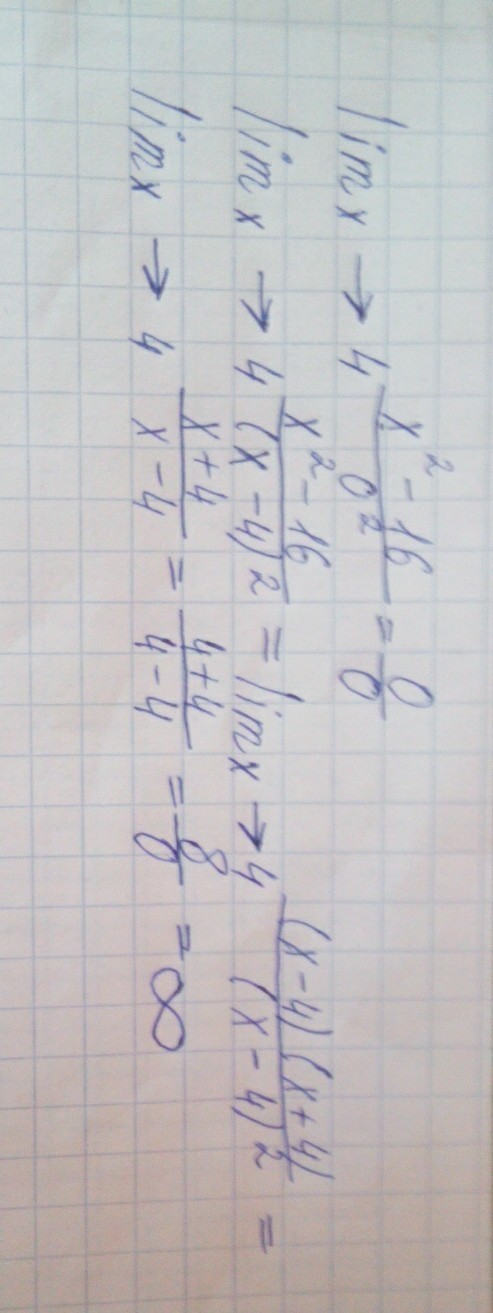 lim x → 4 x² - 16 / 0² = 0/0
lim x → 4 x² - 16 / (x - 4)2 = lim x → 4 (x - 4)(x + 4) / (x - 4)2 =
lim x → 4 x + 4 / x - 4 = 4 + 4 / 4 - 4 = 8/0 = ∞